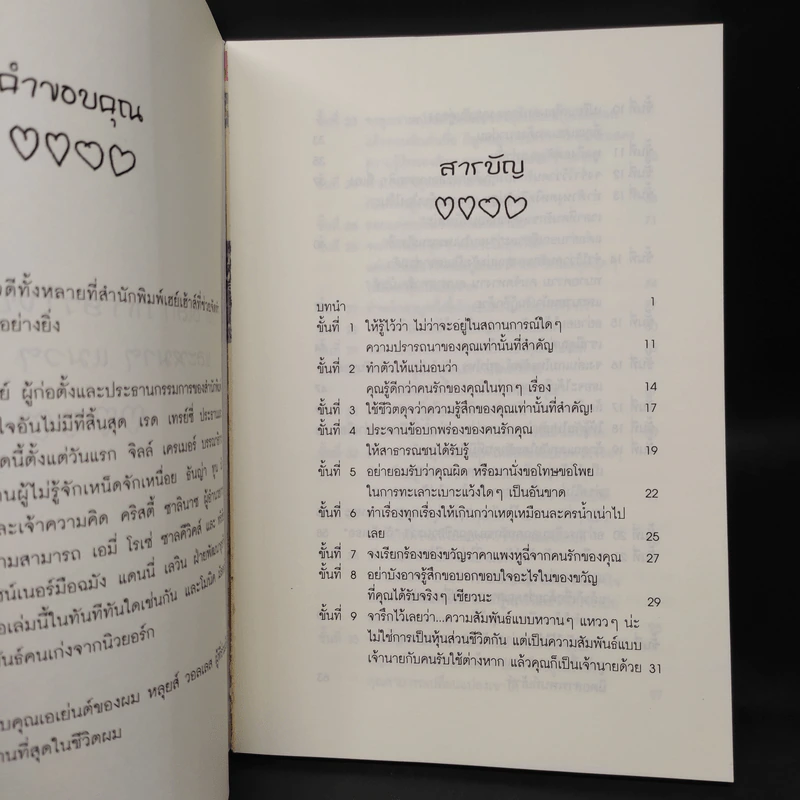 คำขอบคุณ
ดีทั้งหลายที่สำนักพิมพ์เฮย์เฮ้าส์ที่ช่วย
อย่างยิ่ง
ย์ ผู้ก่อตั้งและประธานกรรมการของสำนัก
ใจอันไม่มีที่สิ้นสุด เรด เทรย์ซี่ ประธาน
ดนี้ตั้งแต่วันแรก จิลล์ เครเมอร์
นผู้ไม่รู้จักเหน็ดจักเหนื่อย
ละเจ้าความคิด คริสตี้ ซาลินาซ
ามสามารถ เอมี่ โรเซ่
ซน์เนอร์มือฉมัง แดนนี่ เลวิน
อเล่มนี้ในทันทีทันใดเช่นกัน และ
พันธ์คนเก่งจากนิวยอร์ก
บคุณเอเย่นต์ของผม หลุยส์ วอลเลส
านที่สุดในชีวิตผม
สารบัญ
บทนำ 1
ขั้นที่ 1 ให้รู้ไว้ว่า ไม่ว่าจะอยู่ในสถานการณ์ใดๆ
ความปรารถนาของคุณเท่านั้นที่สำคัญ 11
ขั้นที่ 2 ทำตัวให้แน่นอนว่า
คุณรู้ดีกว่าคนรักของคุณในทุกๆ เรื่อง 14
ขั้นที่ 3 ใช้ชีวิตดุจว่าความรู้สึกของคุณเท่านั้นที่สำคัญ! 17
ขั้นที่ 4 ประจานข้อบกพร่องของคนรักคุณ
ให้สาธารณชนได้รับรู้ 19
ขั้นที่ 5 อย่ายอมรับว่าคุณผิด หรือมานั่งขอโทษขอโพย
ในการทะเลาะเบาะแว้งใดๆ เป็นอันขาด 22
ขั้นที่ 6 ทำเรื่องทุกเรื่องให้เกินกว่าเหตุเหมือนละครน้ำเน่าไป
เลย 25
ขั้นที่ 7 จงเรียกร้องของขวัญราคาแพงหูฉี่จากคนรักของคุณ 27
ขั้นที่ 8 อย่าบังอาจรู้สึกขอบอกขอบใจอะไรในของขวัญ
ที่คุณได้รับจริงๆ เชียวนะ 29
ขั้นที่ 9 จารึกไว้เลยว่า...ความสัมพันธ์แบบหวานๆ แหววๆ น่ะ
ไม่ใช่การเป็นหุ้นส่วนชีวิตกัน แต่เป็นความสัมพันธ์แบบ
เจ้านายกับคนรับใช้ต่างหาก แล้วคุณก็เป็นเจ้านายด้วย 31